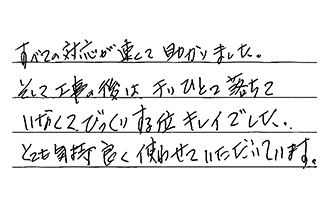 すべての対応が速くて助かりました。
そして工事の後はチリひとつ落ちて
いなくてびっくりする位キレイでした。
とても気持良く使わせていただいています。